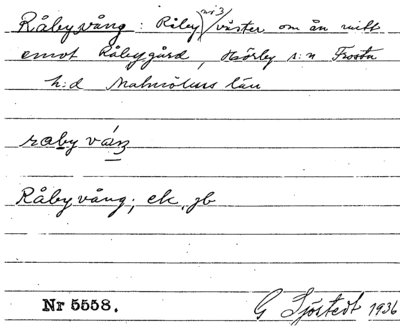 Råbyvång : Råby nr 3/ väster om ån mitt
emot Råbygård, Hörby s:n Frosta
h:d Malmöhus län
raby váŋ
Råbyvång; ek, jb
Nr 5558. G Sjöstedt 1936